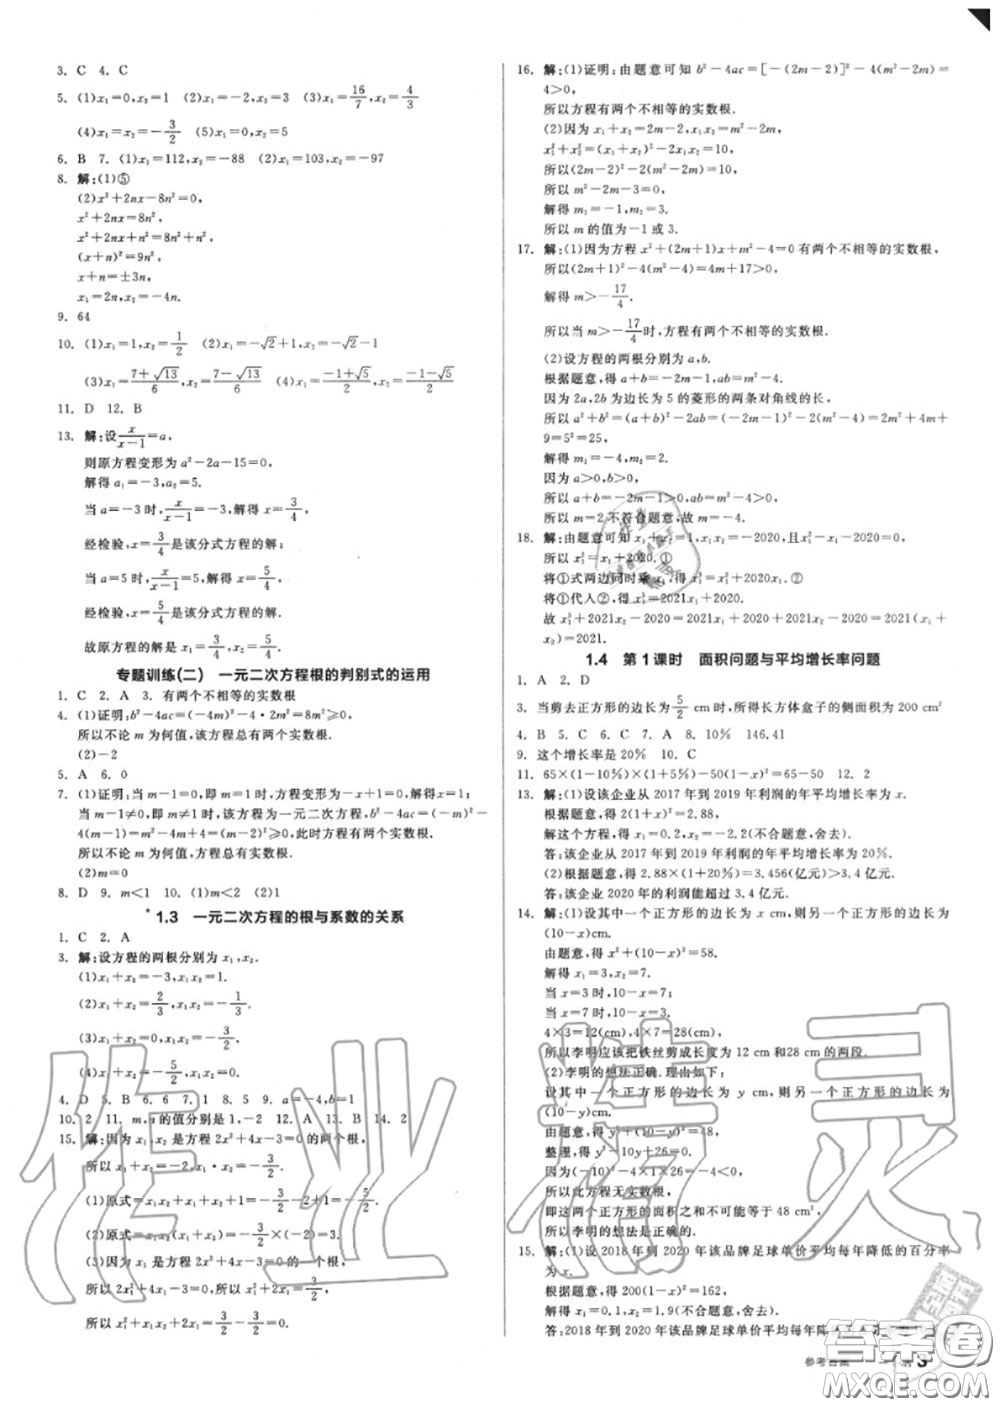 3. C  4. C
5. (1)x₁=0,x₂=1  (2)x₁=-2,x₂=3  (3)x₁=16/7,x₂=4/3
(4)x₁=x₂=-3/2  (5)x₁=0,x₂=5
6. B  7. (1)x₁=112,x₂=-88  (2)x₁=103,x₂=-97
8. 解:(1)⑤
(2)x²+2nx-8n²=0,
x²+2nx=8n²,
x²+2nx+n²=8n²+n²,
(x+n)²=9n²,
x+n=±3n,
x₁=2n,x₂=-4n.
9. 64
10. (1)x₁=1,x₂=1/2  (2)x₁=-√2+1,x₂=-√2-1
(3)x₁=(7+√13)/6,x₂=(7-√13)/6  (4)x₁=(-1+√5)/2,x₂=(-1-√5)/2
11. D  12. B
13. 解:设x/(x-1)=a,
则原方程变形为a²-2a-15=0,
解得a₁=-3,a₂=5.
当a=-3时,x/(x-1)=-3,解得x=3/4,
经检验,x=3/4是该分式方程的解;
当a=5时,x/(x-1)=5,解得x=5/4,
经检验,x=5/4是该分式方程的解.
故原方程的解是x₁=3/4,x₂=5/4.
专题训练(二) 一元二次方程根的判别式的运用
1. C  2. A  3. 有两个不相等的实数根
4. (1)证明:b²-4ac=(-4m)²-4·2m²=8m²≥0,
所以不论m为何值,该方程总有两个实数根.
(2)-2
5. A  6. 0
7. (1)证明:当m-1=0,即m=1时,方程变形为-x+1=0,解得x=1;
当m-1≠0,即m≠1时,该方程为一元二次方程,b²-4ac=(-m)²-
4(m-1)=m²-4m+4=(m-2)²≥0,此时方程有两个实数根.
所以不论m为何值,方程总有实数根.
(2)m=0
8. D  9. m<1  10. (1)m<2  (2)1
* 1.3 一元二次方程的根与系数的关系
1. C  2. A
3. 解:设方程的两根分别为x₁,x₂.
(1)x₁+x₂=-3,x₁x₂=1.
(2)x₁+x₂=2/3,x₁x₂=-1/3.
(3)x₁+x₂=0,x₁x₂=-3/2.
(4)x₁+x₂=5/2,x₁x₂=0.
4. D  5. B  6. 6  7. 1  8. 5  9. a=-4,b=1
10. 2  11. m,n的值分别是1,-2  12. A  13. B  14. 2
15. 解:因为x₁,x₂是方程2x²+4x-3=0的两个根,
所以x₁+x₂=-2,x₁·x₂=-3/2.
(1)原式=x₁x₂+x₁+x₂+1=-3/2-2+1=-5/2.
(2)原式=x₁x₂(x₁+x₂)=-3/2×(-2)=3.
(3)因为x₁+x₂=-2,
所以x₁²+2x₁x₂+x₂²=4.
所以x₁²+x₂²=4-2x₁x₂=4-2×(-3/2)=7.
所以x₁²+x₂²+x₁x₂=
16. 解:(1)证明:由题意可知b²-4ac=[-(2m-2)]²-4(m²-2m)=
4>0,
所以方程有两个不相等的实数根.
(2)因为x₁+x₂=2m-2,x₁x₂=m²-2m,
x₁²+x₂²=(x₁+x₂)²-2x₁x₂=10,
所以(2m-2)²-2(m²-2m)=10,
所以m²-2m-3=0,
解得m₁=-1,m₂=3,
所以m的值为-1或3.
17. 解:(1)因为方程x²+(2m+1)x+m²-4=0有两个不相等的实数根,
所以(2m+1)²-4(m²-4)=4m+17>0,
解得m>-17/4.
所以当m>-17/4时,方程有两个不相等的实数根.
(2)设方程的两根分别为a,b.
根据题意,得a+b=-2m-1,ab=m²-4.
因为2a,2b为边长为5的菱形的两条对角线的长,
所以a²+b²=(a+b)²-2ab=(-2m-1)²-2(m²-4)=2m²+4m+
9=5²=25,
解得m₁=-4,m₂=2.
因为a>0,b>0,
所以a+b=-2m-1>0,
所以m=2不符合题意,故m=-4.
18. 解:由题意可知x₁+x₂=1,x₁x₂=-2020,且x₁²-x₁=2020,
所以x₁²=x₁+2020.①
将①式两边同时乘x₁,得x₁³=x₁²+2020x₁.②
将①代入②,得x₁³=2021x₁+2020.
故x₁³+2021x₂-2020=2021x₁+2020+2021x₂-2020=2021(x₁+
x₂)=2021.
1.4 第1课时 面积问题与平均增长率问题
1. A  2. D
3. 当剪去正方形的边长为5/2 cm时,所得长方体盒子的侧面积为200 cm²
4. B  5. C  6. C  7. A  8. 10%  146.41
9. 这个增长率是20%  10. C
11. 65×(1-10%)×(1+5%)-50(1-x)²=65-50  12. 2
13. 解:(1)设该企业从2017年到2019年利润的年平均增长率为x.
根据题意,得2(1+x)²=2.88,
解这个方程,得x₁=0.2,x₂=-2.2(不合题意,舍去).
答:该企业从2017年到2019年利润的年平均增长率为20%.
(2)根据题意,得2.88×(1+20%)=3.456(亿元)>3.4亿元.
答:该企业2020年的利润能超过3.4亿元.
14. 解:(1)设其中一个正方形的边长为x cm,则另一个正方形的边长为
(10-x)cm.
由题意,得x²+(10-x)²=58.
解得x₁=3,x₂=7.
当x=3时,10-x=7;
当x=7时,10-x=3.
4×3=12(cm),4×7=28(cm),
所以李明应该把铁丝剪成长度为12 cm和28 cm的两段.
(2)李明的想法正确.理由如下:
设其中一个正方形的边长为y cm,则另一个正方形的边长为
(10-y)cm.
由题意,得y²+(10-y)²=48,
整理,得y²-10y+26=0.
因为(-10)²-4×1×26=-4<0,
所以此方程无实数根,
即这两个正方形的面积之和不可能等于48 cm²,
所以李明的想法是正确的.
15. 解:(1)设2018年到2020年该品牌足球单价平均每年降低的百分率
为x.
根据题意,得200(1-x)²=162,
解得x₁=0.1,x₂=1.9(不合题意,舍去).
答:2018年到2020年该品牌足球单价平均每年降
参考答案
作业精灵
答案圈
MXQE.COM